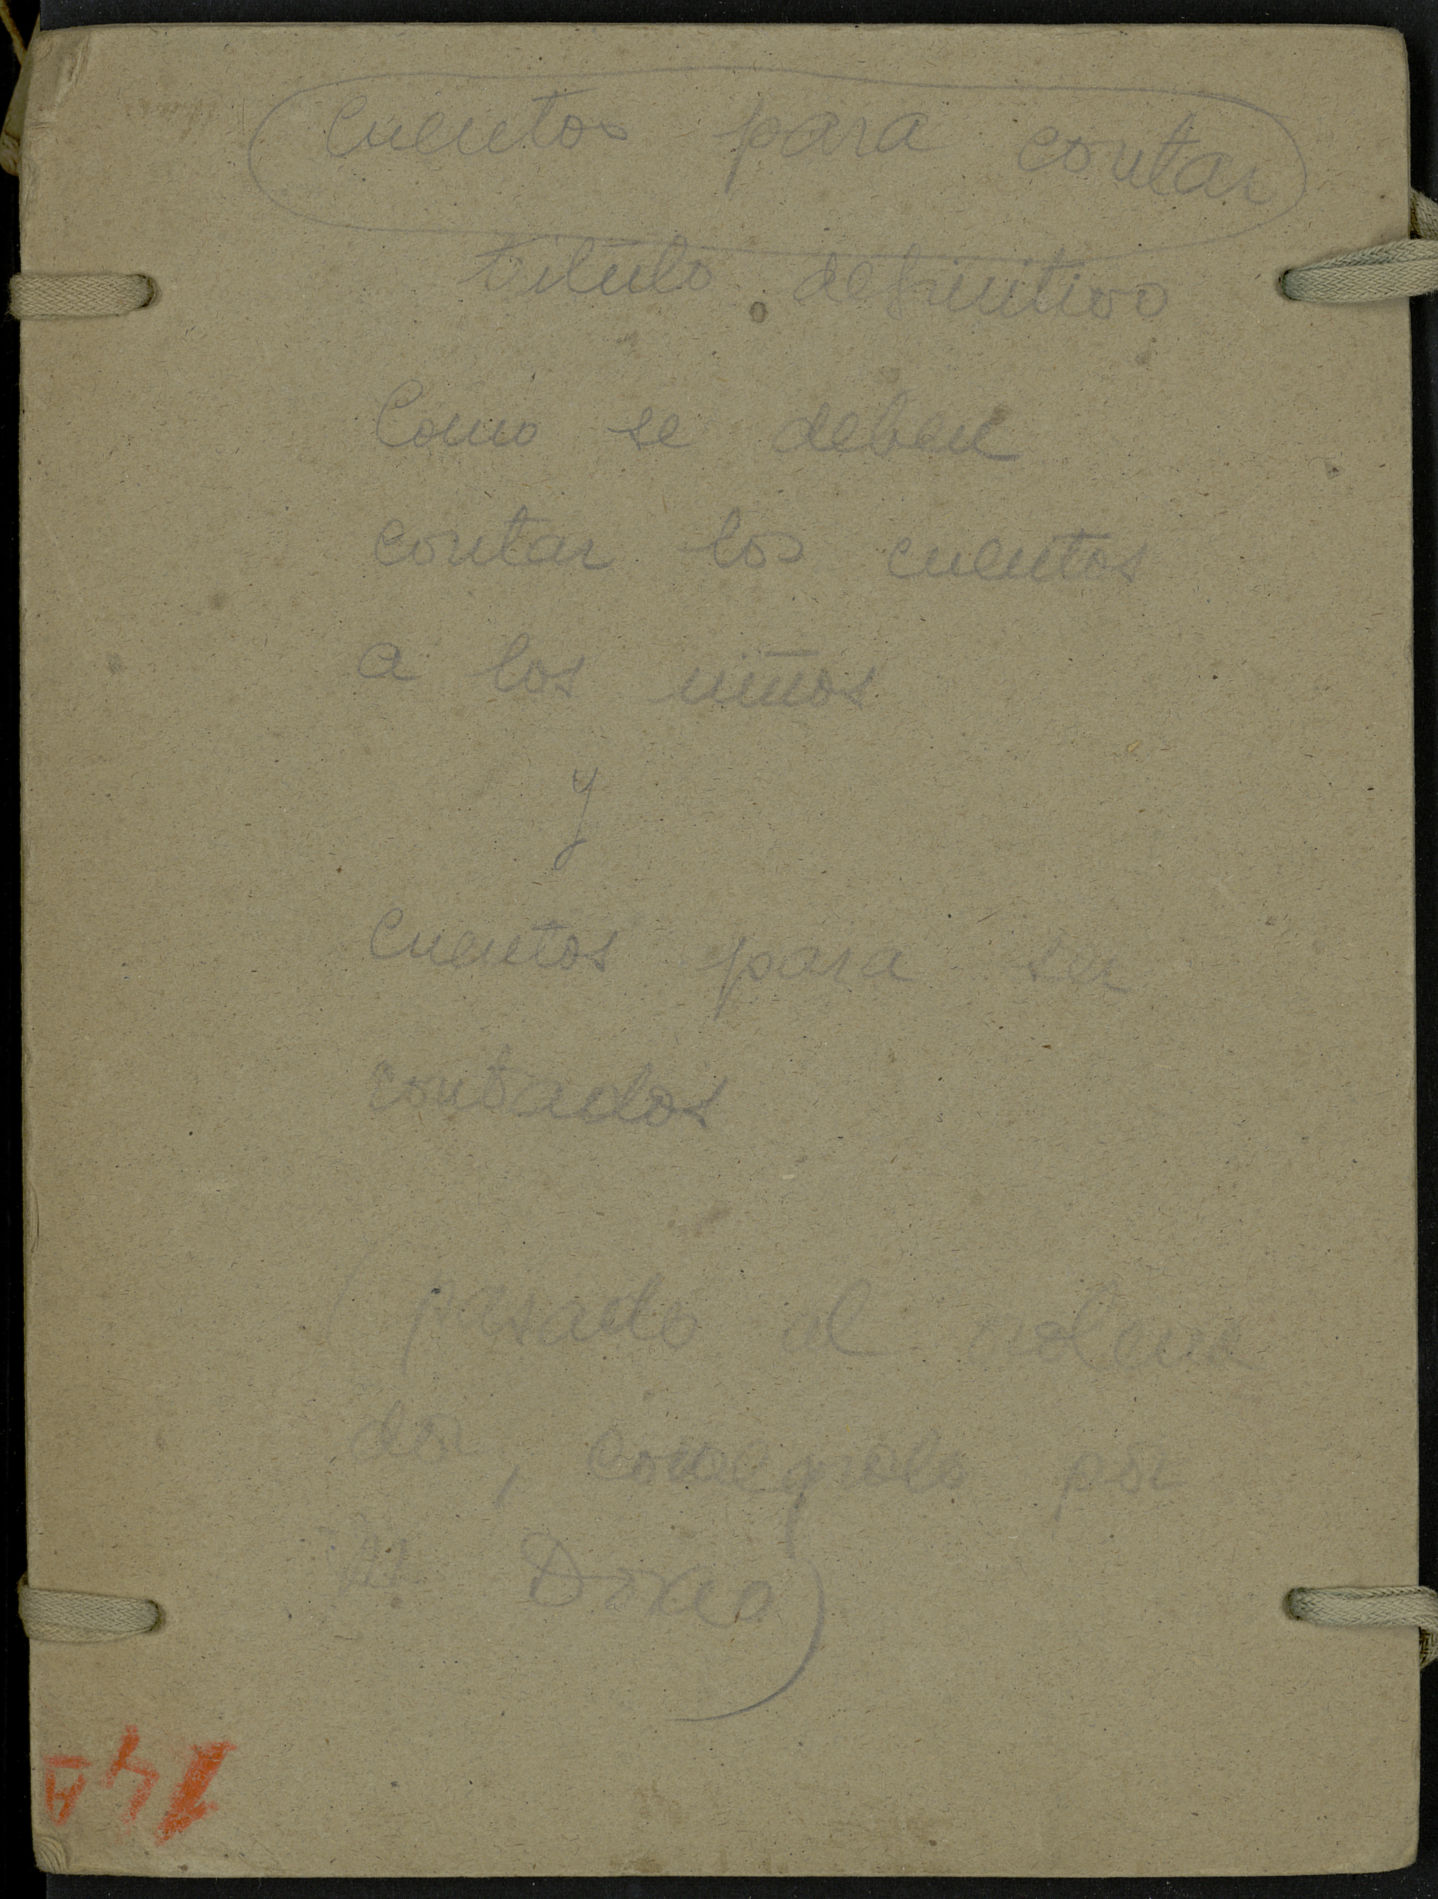 Cuentos para contar
titulo definitivo
Como se deben
contar los cuentos
a los niños
y
Cuentos para ser
contados
(pasado al
por
Doxeo)